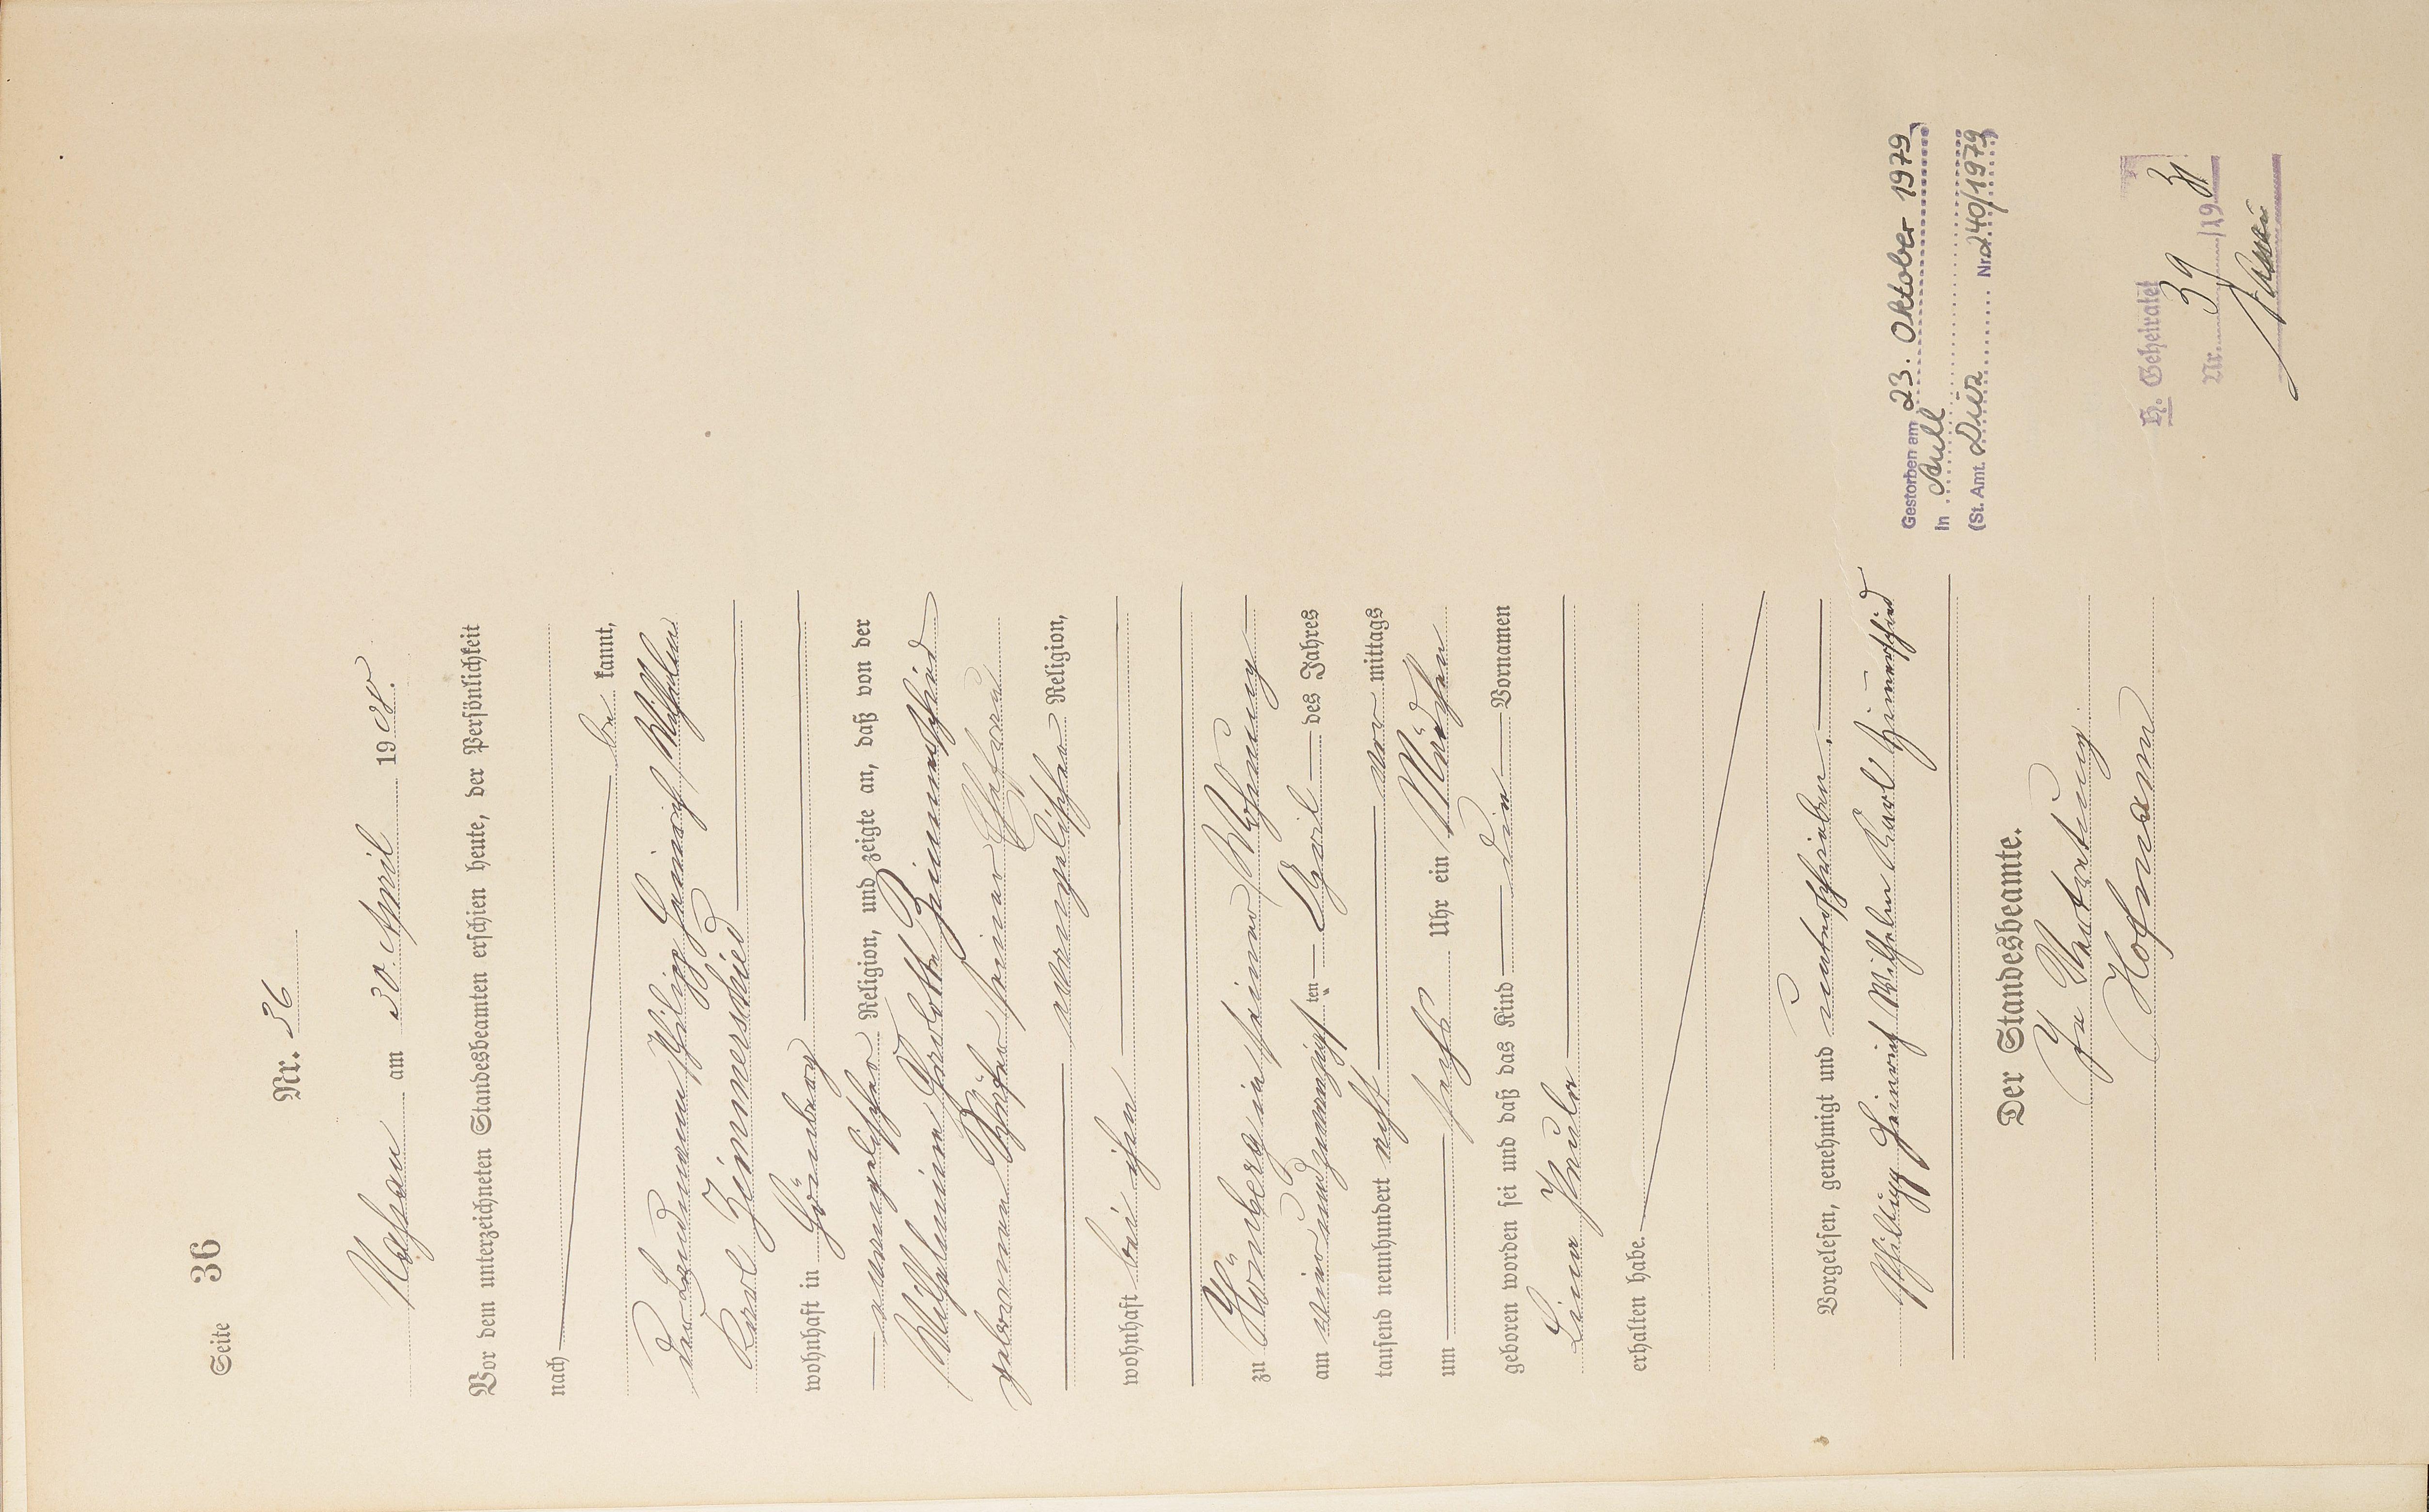 Seite 36
Nr. 36
Nassau am 30. April 1908.
Vor dem unterzeichneten Standesbeamten erschien heute, der Persönlichkeit
nach be kannt,
der Landmann Philipp Heinrich Wilhelm
Karl Zimmerschied
wohnhaft in Hömberg
evangelischer Religion, und zeigte an, daß von der
Wilhelmine Karolotte Zimmerschied
geborenen Schäfer seiner Ehefrau
evangelischer Religion,
wohnhaft bei ihm
zu Hömberg in seiner Wohnung
am vierundzwanzigsten April des Jahres
tausend neunhundert acht vor mittags
um sechs Uhr ein Mädchen
geboren worden sei und daß das Kind die Vornamen
Lina Paula
erhalten habe.
Vorgelesen, genehmigt und unterschrieben.
Philipp Heinrich Wilhelm Karl Zimmerschied
Der Standesbeamte.
In Vertretung
Hofmann
Gestorben am 23. Oktober 1979
in Aull
(St. Amt. Diez Nr. 240/1979)
H. Geheiratet
Nr. 39/1931